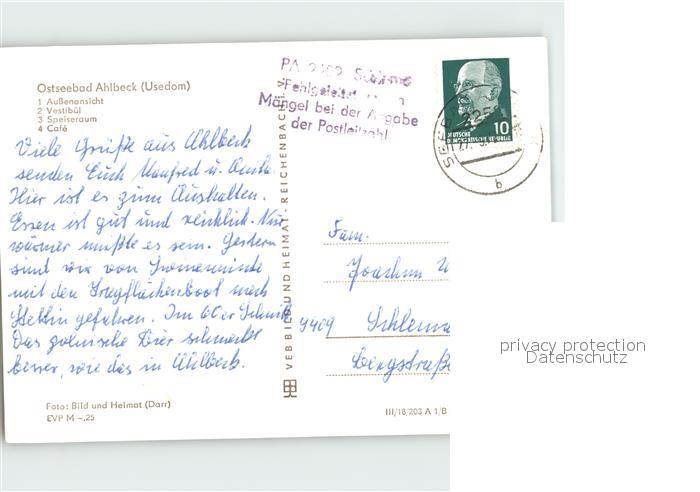 Ostseebad Ahlbeck (Usedom)
1 Außenansicht
2 Vestibül
3 Speiseraum
4 Café
Viele Grüße aus Ahlbeck
senden Euch Manfred u. Anita.
Hier ist es zum Aushalten.
Essen ist gut und reichlich. Nur
wärmer müßte es sein. Gestern
sind wir von Swinemünde
mit den Tragflächenboot nach
Stettin gefahren. Im 60er Schnitt
Das polnische Bier schmeckt
besser, wie das in Ahlbeck.
Foto: Bild und Heimat (Darr)
EVP M -,25
VEB BILD UND HEIMAT · REICHENBACH i. V.
PA
Mängel bei der Angabe
der Postleitzahl
DEUTSCHE
10
SEE
225
b
Fam.
Joachim
9409
Bergstraße
III/18/203 A 1/B
privacy protection
Datenschutz